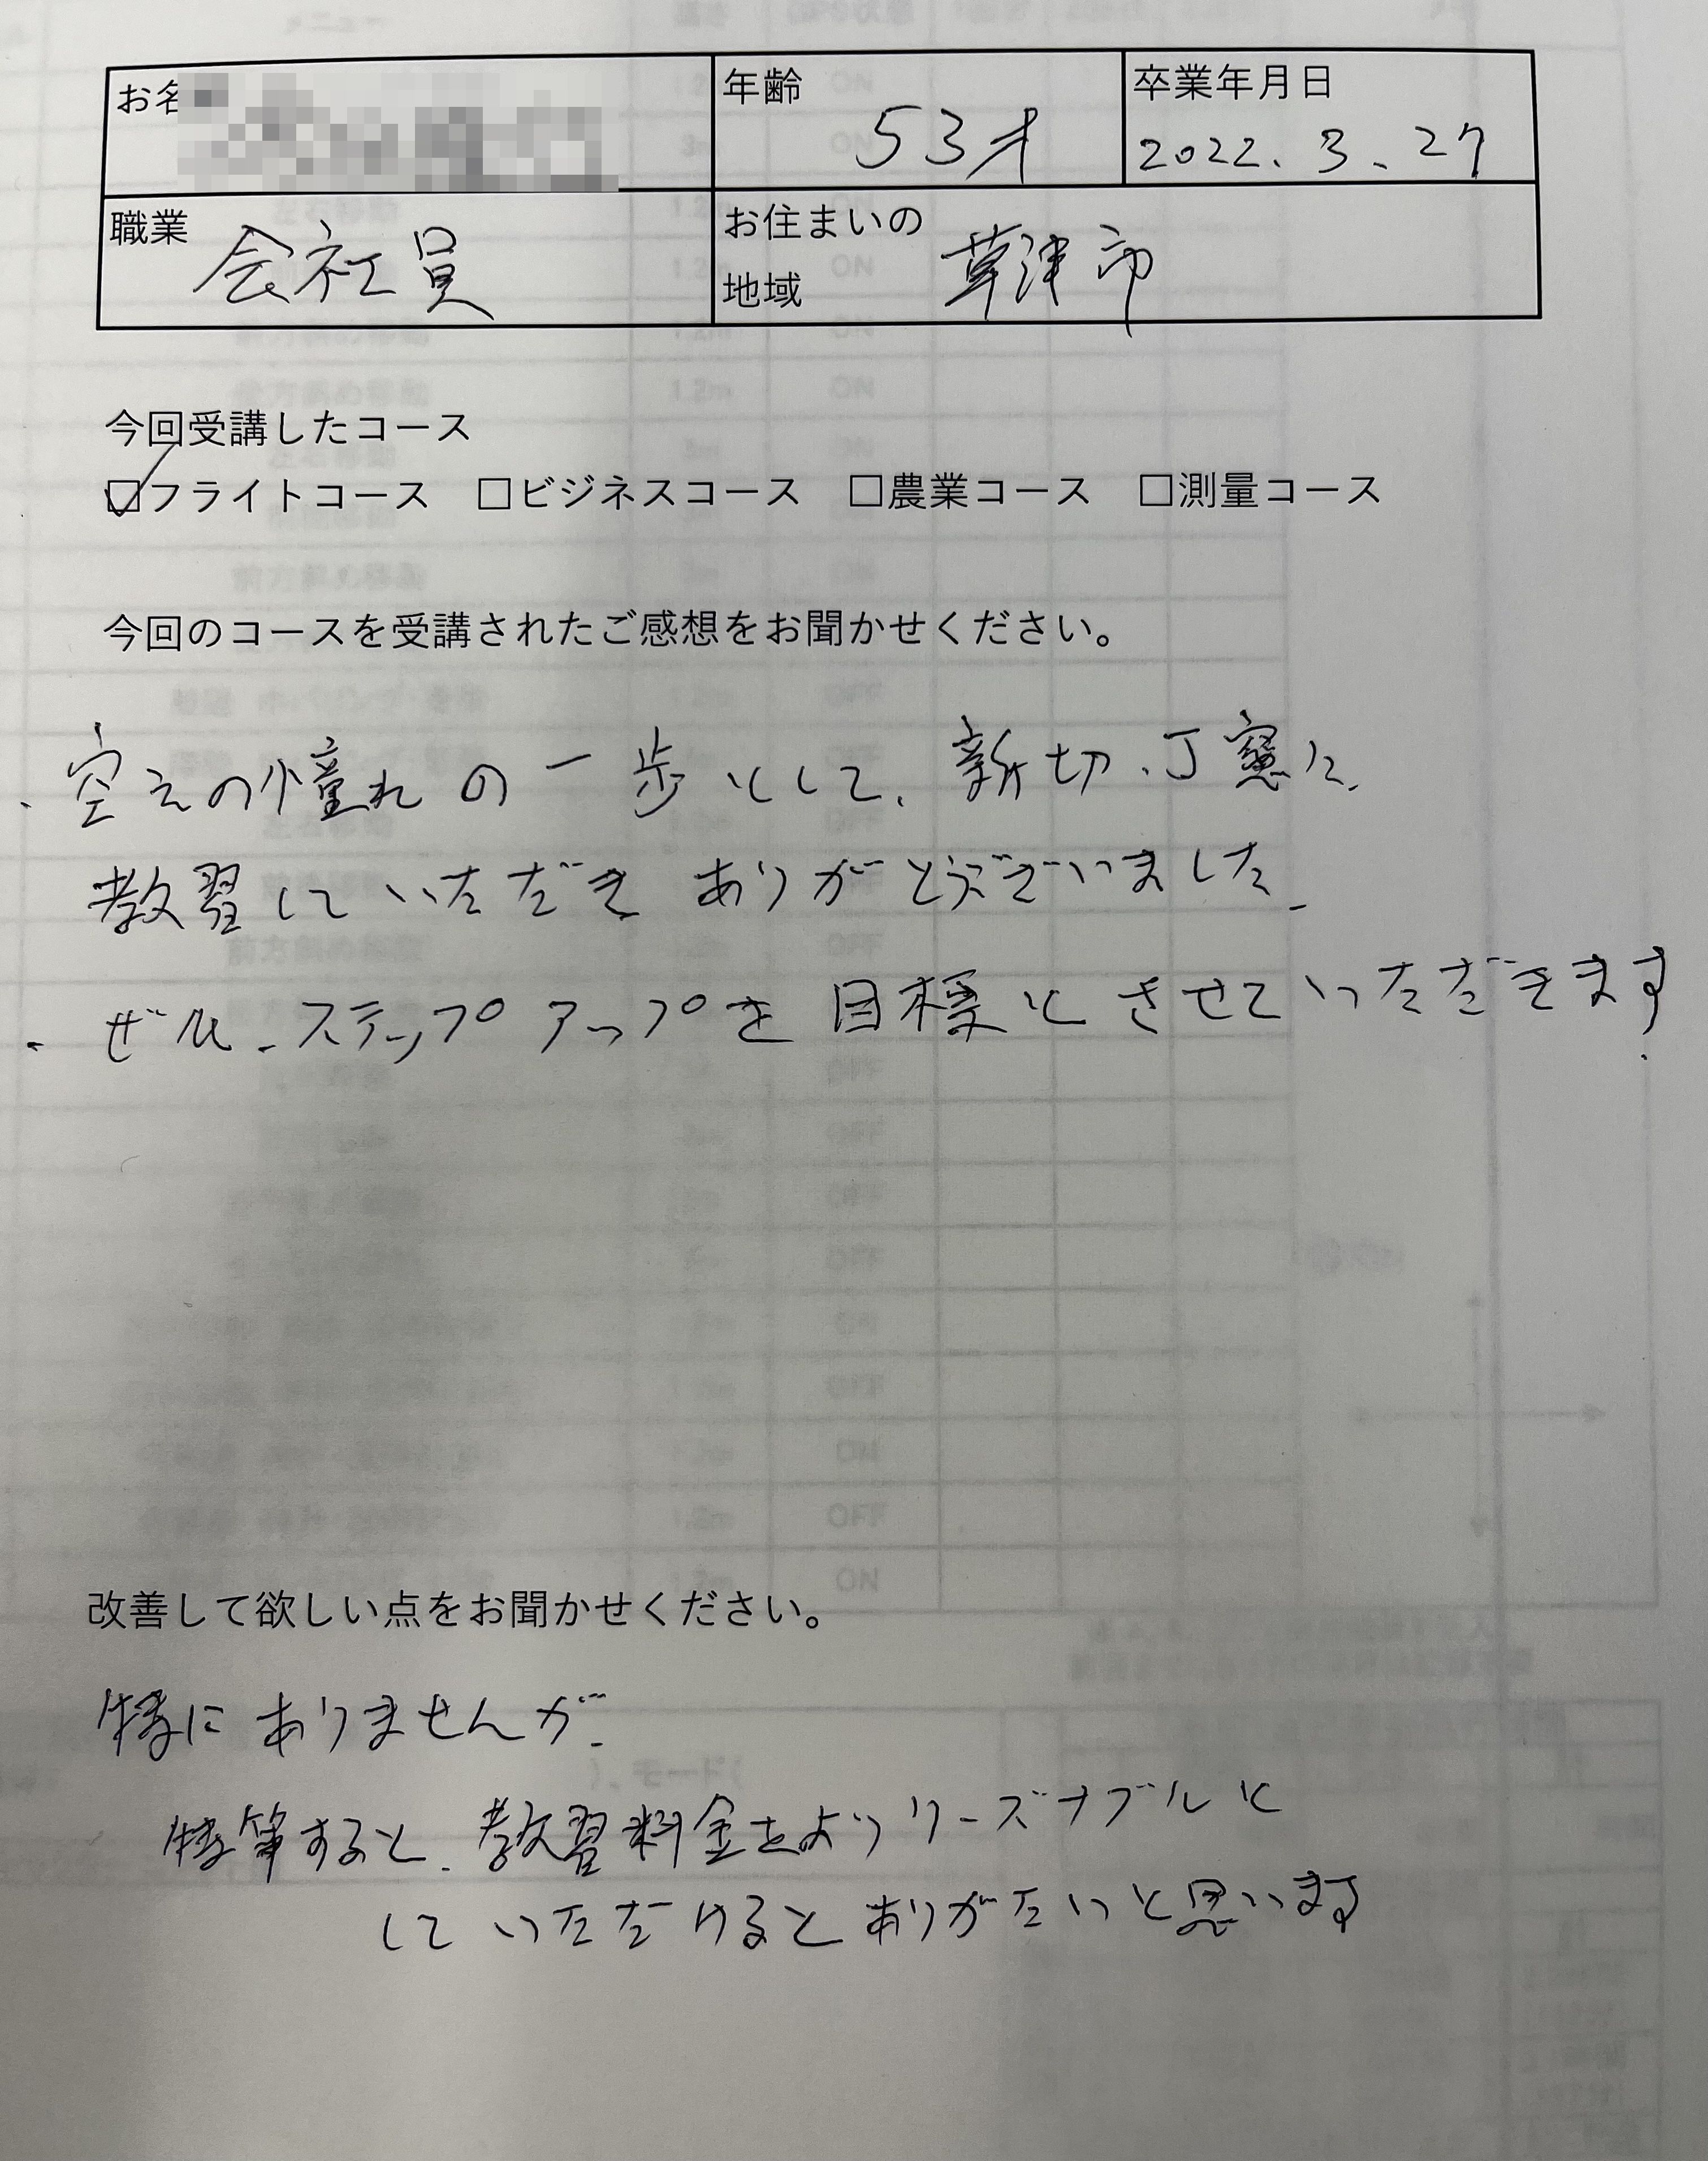 お名
年齢
53才
卒業年月日
2022.3.27
職業
会社員
お住まいの
地域
草津市
今回受講したコース
☑フライトコース □ビジネスコース □農業コース □測量コース
今回のコースを受講されたご感想をお聞かせください。
・空えの憧れの一歩として、新切、丁寧に
教習していただき ありがとうございました。
・ぜひ、ステップアップを目標とさせていただきます。
改善して欲しい点をお聞かせください。
特にありませんが、
特筆すると、教習料金をよりリーズナブルと
していただけるとありがたいと思います